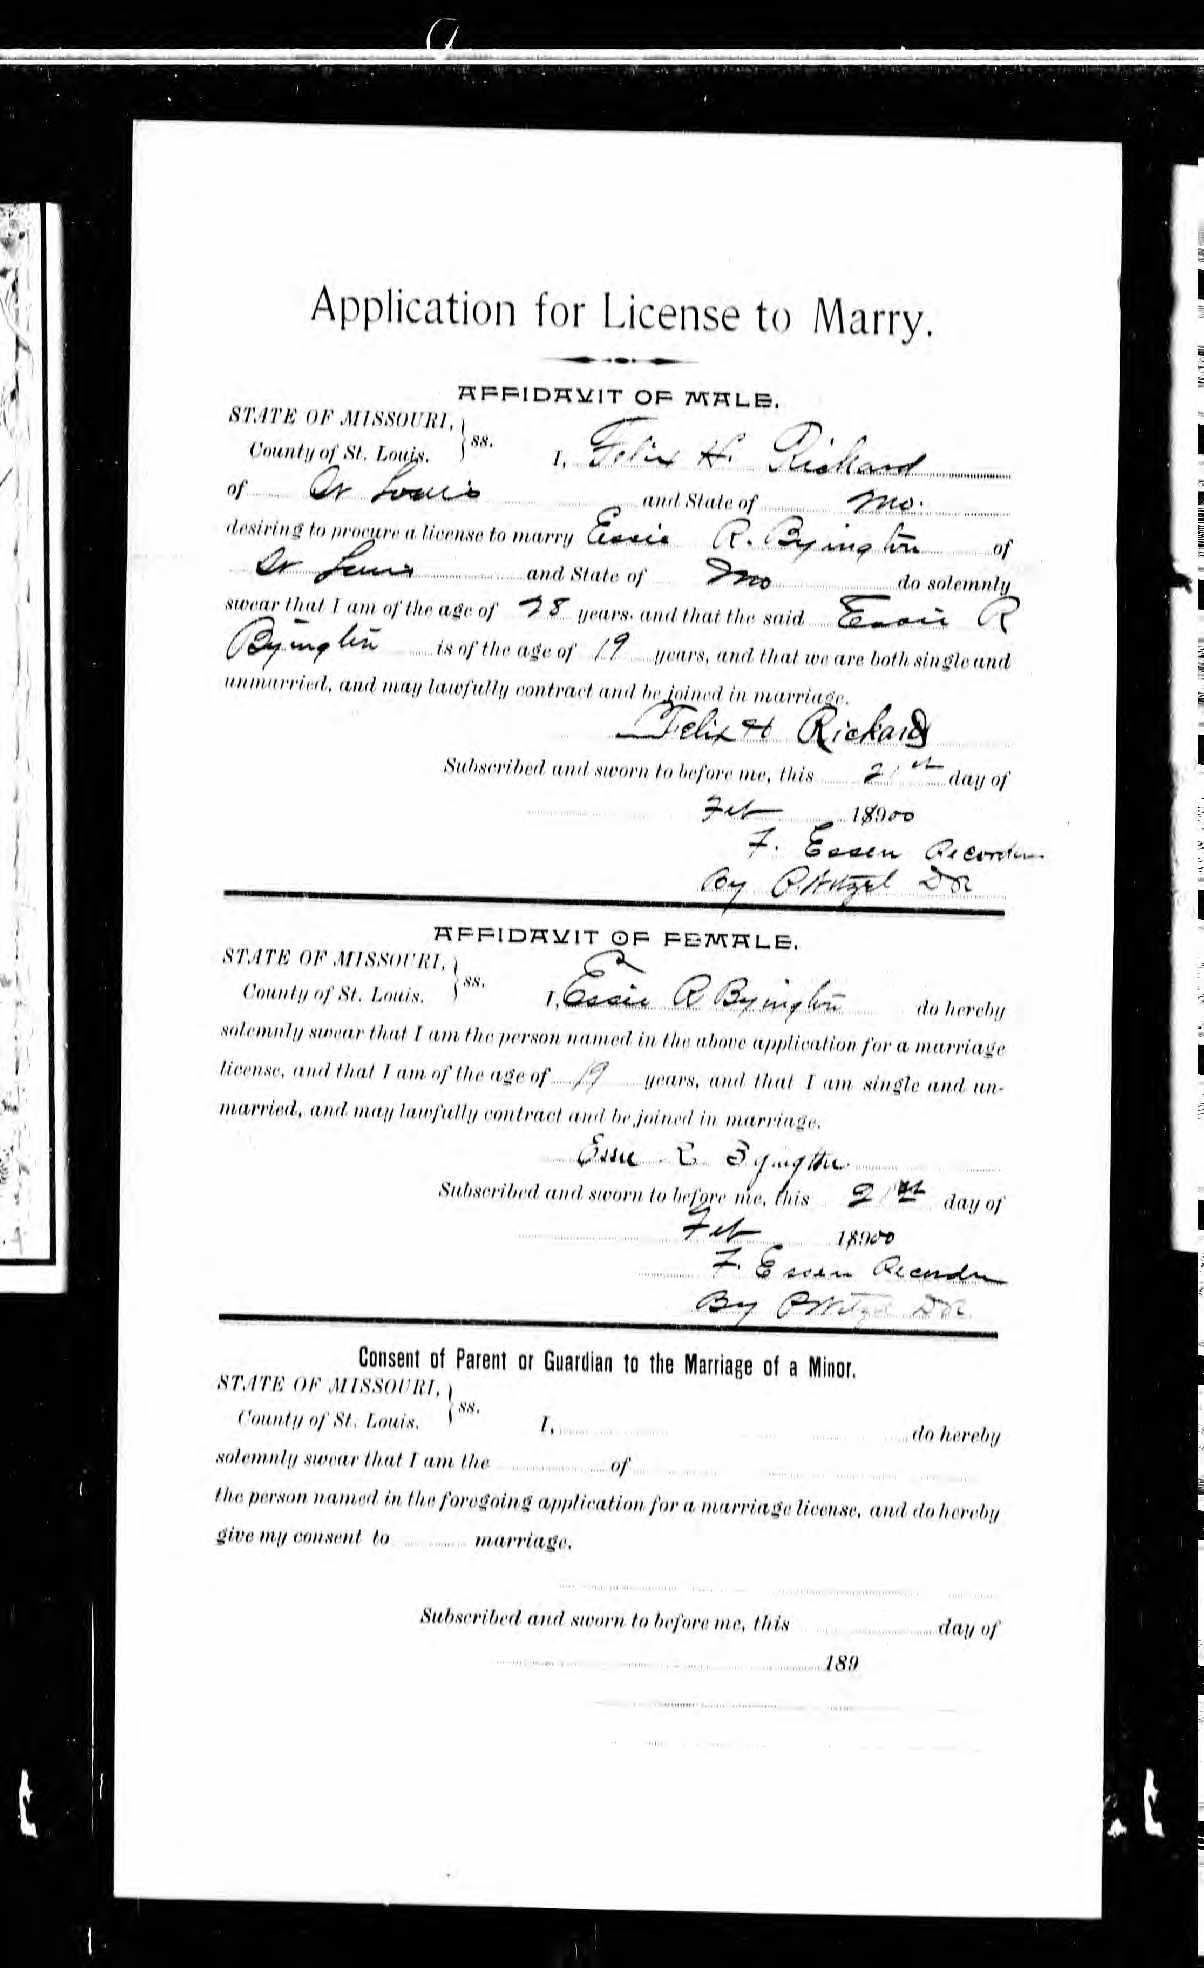 Application for License to Marry.
AFFIDAVIT OF MALE.
STATE OF MISSOURI, } ss.
County of St. Louis. I, Felix H. Rickard
of St Louis and State of Mo.
desiring to procure a license to marry Essie R. Byington of
St Louis and State of Mo do solemnly
swear that I am of the age of 28 years, and that the said Essie R
Byington is of the age of 19 years, and that we are both single and
unmarried, and may lawfully contract and be joined in marriage.
Felix H Rickard
Subscribed and sworn to before me, this 21st day of
Feb 18900
F. Essen Recorder
By DR
AFFIDAVIT OF FEMALE.
STATE OF MISSOURI, } ss.
County of St. Louis. I, Essie R Byington do hereby
solemnly swear that I am the person named in the above application for a marriage
license, and that I am of the age of 19 years, and that I am single and un-
married, and may lawfully contract and be joined in marriage.
Essie R Byington
Subscribed and sworn to before me, this 21st day of
Feb 18900
F. Essen Recorder
By DR
Consent of Parent or Guardian to the Marriage of a Minor.
STATE OF MISSOURI, } ss.
County of St. Louis. I, do hereby
solemnly swear that I am the of
the person named in the foregoing application for a marriage license, and do hereby
give my consent to marriage.
Subscribed and sworn to before me, this day of
189